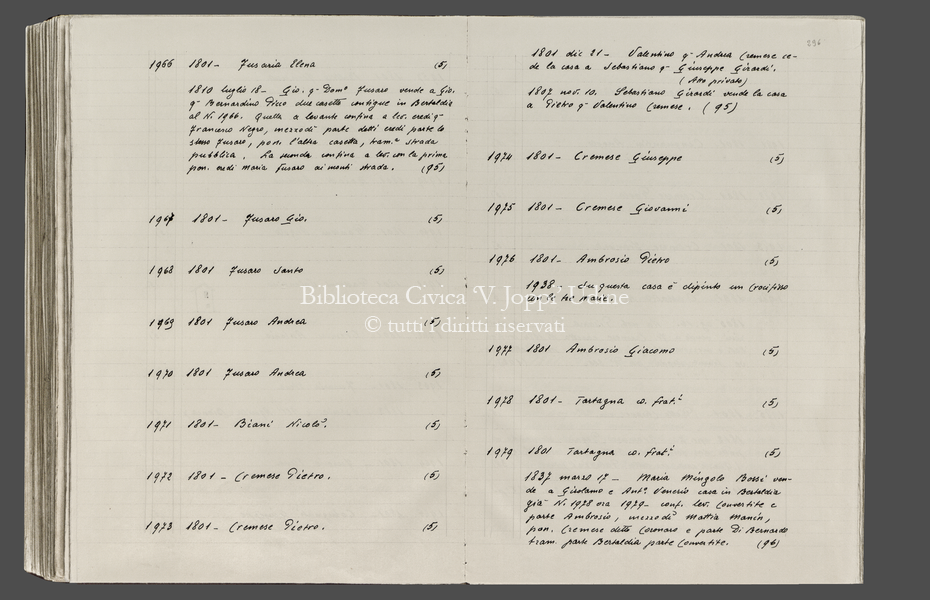 1966 1801 – Fusaria Elena (5)
1810 luglio 18 – Gio. q- Dom.º Fusaro vende a Gio.
q- Bernardino Pico due casette contigue in Bertaldia
al N. 1966. Quella a levante confina a lev. eredi q-
Francesco Negro, mezzodì parte detti eredi parte lo
stesso Fusaro, pon. l'altra casetta, tram.ª strada
pubblica. La seconda confina a lev. con la prima
pon. eredi Maria Fusaro ai monti strada. (95)
1967 1801 – Fusaro Gio. (5)
1968 1801 Fusaro Santo (5)
1969 1801 Fusaro Andrea (5)
1970 1801 Fusaro Andrea (5)
1971 1801 – Biani Nicolò. (5)
1972 1801 – Cremese Pietro. (5)
1973 1801 – Cremese Pietro. (5)
296
1801 dic 21 – Valentino q- Andrea Cremese ce-
de la casa a Sebastiano q- Giuseppe Girardi.
(Atto privato)
1807 nov. 10. Sebastiano Girardi vende la casa
a Pietro q- Valentino Cremese. (95)
1974 1801 – Cremese Giuseppe (5)
1975 1801 – Cremese Giovanni (5)
1976 1801 – Ambrosio Pietro (5)
1938 – Su questa casa è dipinto un Crocifisso
con le tre marie.
1977 1801 Ambrosio Giacomo (5)
1978 1801 – Tartagna co. frat.i (5)
1979 1801 Tartagna co. frat.i (5)
1837 marzo 17 – Maria Mingolo Bossi ven-
de a Girolamo e Ant.º Venerio casa in Bertaldia
già N. 1978 ora 1979 – conf. lev. Convertite e
parte Ambrosio, mezzodì Mattia Manin,
pon. Cremese detto Coronaro e parte Di Bernardo
tram. parte Bertaldia parte Convertite. (96)
Biblioteca Civica 'V. Joppi' Udine
© tutti i diritti riservati